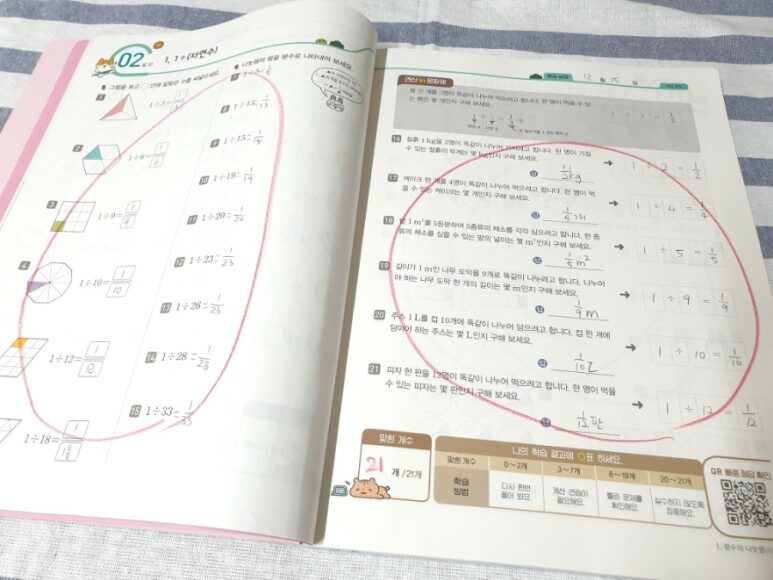 02 일차
1. 1÷(자연수)
그림을 보고 □ 안에 알맞은 수를 써넣으세요.
1
1÷3=
2
1÷6=1/6
3
1÷9=1/9
4
1÷10=1/10
1÷12=1/12
1÷18=1/18
나눗셈의 몫을 분수로 나타내어 보세요.
8 1÷13=1/13
9 1÷15=1/15
10 1÷19=1/19
11 1÷20=1/20
12 1÷23=1/23
13 1÷26=1/26
14 1÷28=1/28
15 1÷33=1/33
연산 in 문장제
학습 날짜 12 월 15 일
빵 한 개를 3명이 똑같이 나누어 먹으려고 합니다. 한 명이 먹을 수 있
는 빵은 몇 개인지 구해 보세요.
1 ÷ 3 = 1/3
16 찰흙 1 kg을 2명이 똑같이 나누어 가지려고 합니다. 한 명이 가질
수 있는 찰흙의 무게는 몇 kg인지 구해 보세요.
1 ÷ 2 = 1/2
답 1/2kg
17 케이크 한 개를 4명이 똑같이 나누어 먹으려고 합니다. 한 명이 먹
을 수 있는 케이크는 몇 개인지 구해 보세요.
1 ÷ 4 = 1/4
답 1/4개
18 밭 1 m²를 5등분하여 5종류의 채소를 각각 심으려고 합니다. 한 종
류의 채소를 심을 수 있는 밭의 넓이는 몇 m²인지 구해 보세요.
1 ÷ 5 = 1/5
답 1/5 m²
19 길이가 1 m인 나무 도막을 9개로 똑같이 나누려고 합니다. 나누어
야 하는 나무 도막 한 개의 길이는 몇 m인지 구해 보세요.
1 ÷ 9 = 1/9
답 1/9 m
20 주스 1 L를 컵 10개에 똑같이 나누어 담으려고 합니다. 컵 한 개에
담아야 하는 주스는 몇 L인지 구해 보세요.
1 ÷ 10 = 1/10
답 1/10 L
21 피자 한 판을 12명이 똑같이 나누어 먹으려고 합니다. 한 명이 먹을
수 있는 피자는 몇 판인지 구해 보세요.
1 ÷ 12 = 1/12
답 1/12 판
맞힌 개수
21 개 /21개
나의 학습 결과에 ○표 하세요.
맞힌 개수 0~2개 3~7개 8~19개 20~21개
학습 방법 다시 한번 풀어 봐요. 계산 연습이 필요해요. 틀린 문제를 확인해요. 실수하지 않도록 집중해요.
QR 빠른 정답 확인
1. 분수의 나눗셈